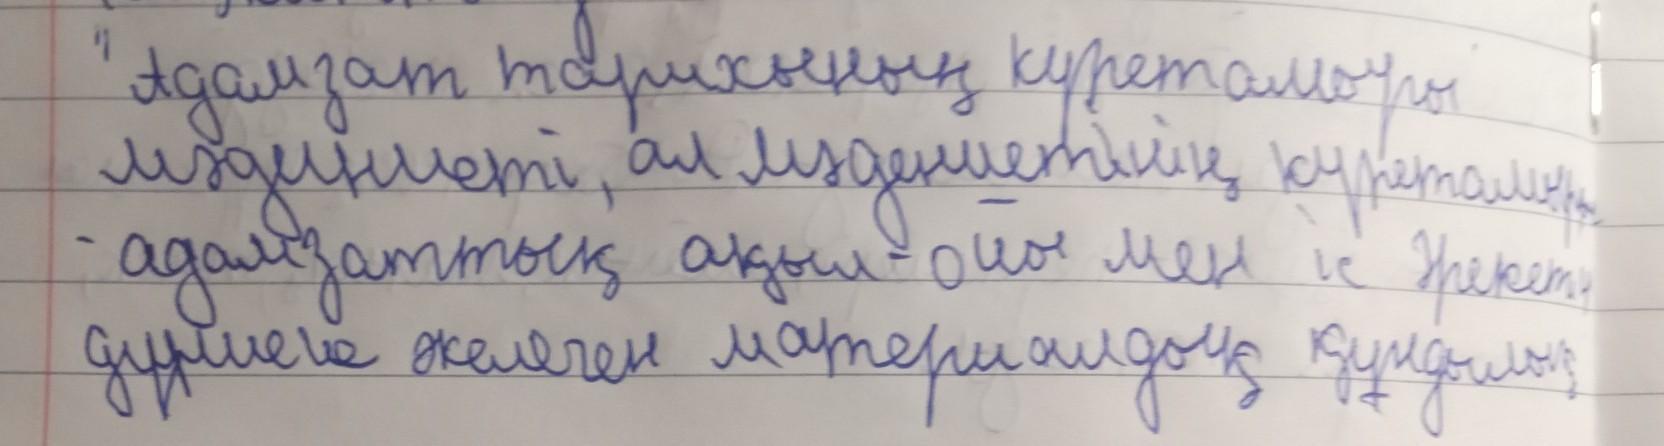 "Адамзат тарихының күретамыры
мәдениеті, ал мәдениетінің күретамыры
- адамзаттың ақыл-ойы мен іс әрекеті
дүниеге әкелген материалдық құндылық